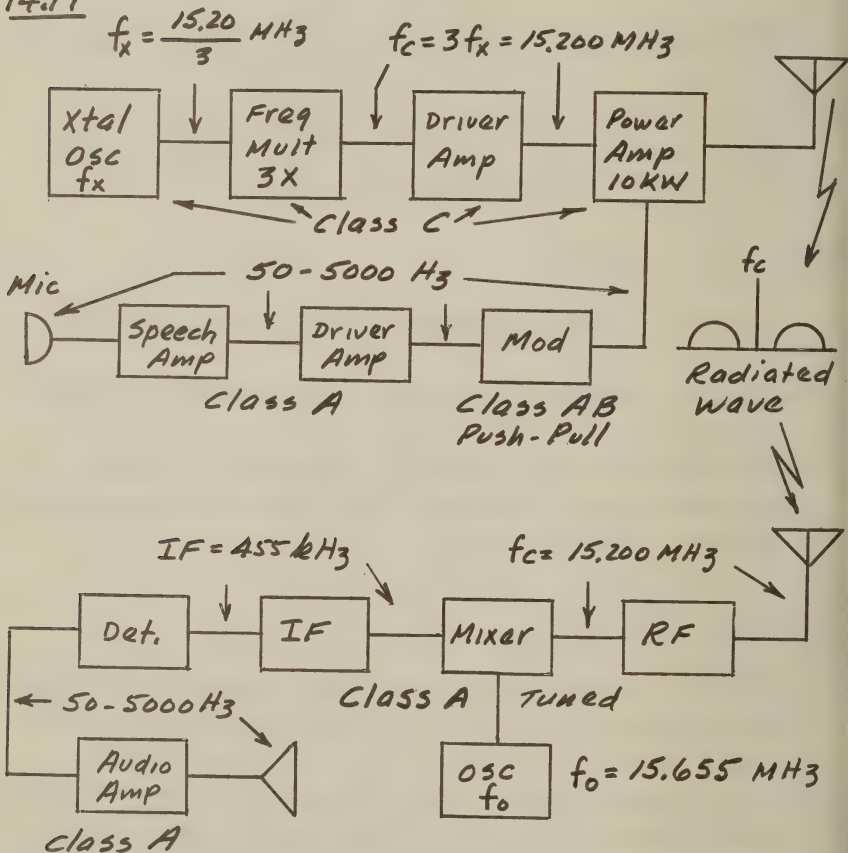 f_x = 15.20/3 MHz
f_c = 3f_x = 15.200 MHz
Xtal
Osc
f_x
Freq
Mult
3X
Driver
Amp
Power
Amp
10KW
Class C
50-5000 Hz
Mic
Speech
Amp
Driver
Amp
Mod
Class A
Class AB
Push-Pull
f_c
Radiated
wave
IF = 455 kHz
f_c = 15.200 MHz
Det.
IF
Mixer
RF
50-5000 Hz
Class A Tuned
Audio
Amp
Osc
f_o
f_o = 15.655 MHz
Class A